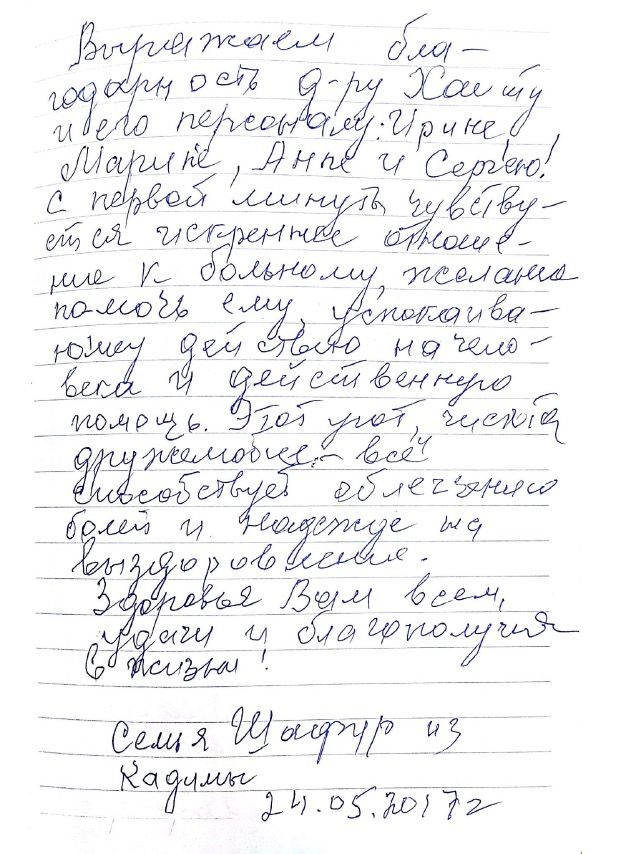 Выражаем бла-
годарность д-ру Хаиту
и его персоналу: Ирине,
Марине, Анне и Сергею!
С первой минуты чувству-
ется искреннее отноше-
ние к больному, желание
помочь ему, успокаива-
ющему действию на чело-
века и действенную
помощь. Этот уют, чистота,
дружелюбие – всё
способствует облегчению
болей и надежде на
выздоровление.
Здоровья Вам всем,
удачи и благополучия
в жизни!
Семья из
Кадимы
24.05.2017г